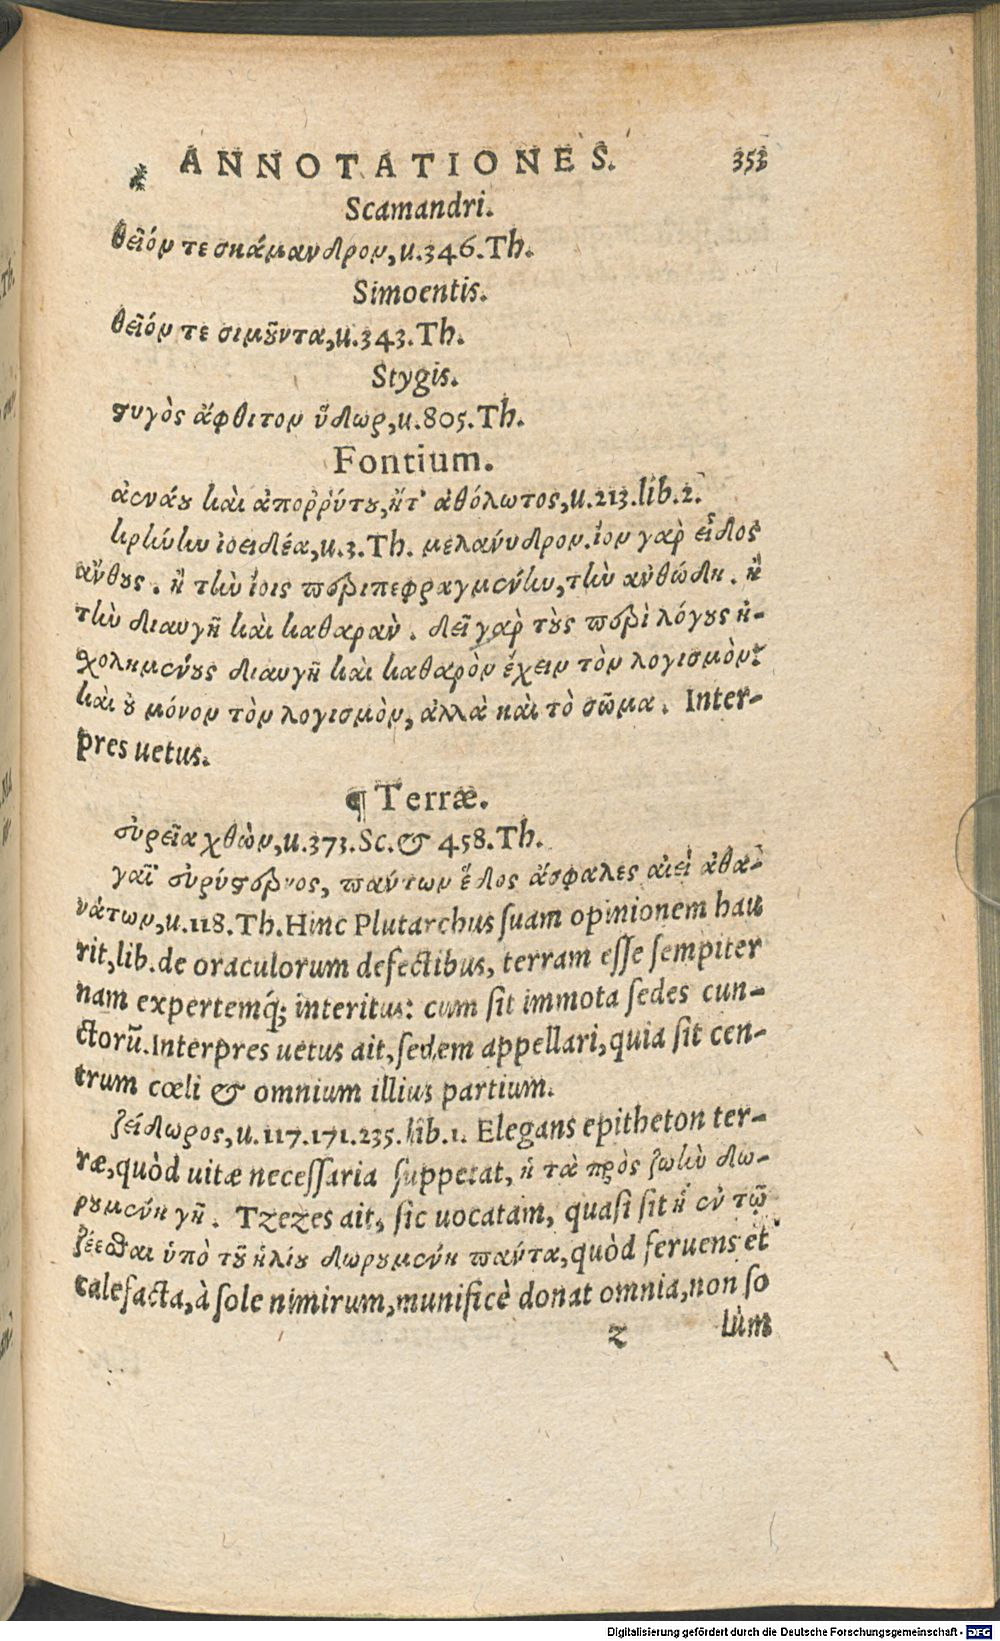 ANNOTATIONES. 353
Scamandri.
θεῖόν τε σκάμανδρον, u.346.Th.
Simoentis.
θεῖόν τε σιμοῦντα, u.343.Th.
Stygis.
στυγὸς ἄφθιτον ὕδωρ, u.805.Th.
Fontium.
ἀενάου καὶ ἀποῤῥύτου, ἥτ' ἀθόλωτος, u.213.lib.2.
κρήνην ἰοειδέα, u.3.Th. μελανύδρον. ἴον γὰρ εἶδος
ἄνθους. ἢ τὴν ἴοις περιπεφραγμένην, τὴν ἀνθώδη. ἢ
τὴν διαυγῆ καὶ καθαρὰν. δεῖ γὰρ τοὺς περὶ λόγους ἠ-
χολημένους διαυγῆ καὶ καθαρὸν ἔχειν τὸν λογισμὸν:
καὶ οὐ μόνον τὸν λογισμὸν, ἀλλὰ καὶ τὸ σῶμα. Inter-
pres uetus.
¶ Terræ.
εὐρεῖα χθὼν, u.373.Sc.& 458.Th.
γαῖ' εὐρύστερνος, πάντων ἕδος ἀσφαλες αἰεὶ ἀθα-
νάτων, u.118.Th. Hinc Plutarchus ſuam opinionem hau
rit, lib.de oraculorum defectibus, terram eſſe ſempiter
nam expertemq́; interitus: cum ſit immota ſedes cun-
ctorũ. Interpres uetus ait, ſedem appellari, quia ſit cen-
trum cœli & omnium illius partium.
ζείδωρος, u.117.171.235.lib.1. Elegans epitheton ter-
ræ, quòd uitæ neceſſaria ſuppetat, ἡ τὰ πρὸς ζωὴν δω-
ρουμένη γῆ. Tzezes ait, ſic uocatam, quaſi ſit ἡ ἐν τῷ
ζέεσθαι ὑπὸ τοῦ ἡλίου δωρουμένη πάντα, quòd feruens et
calefacta, à ſole nimirum, munificè donat omnia, non ſo
z lùm
Digitalisierung gefördert durch die Deutsche Forschungsgemeinschaft - DFG